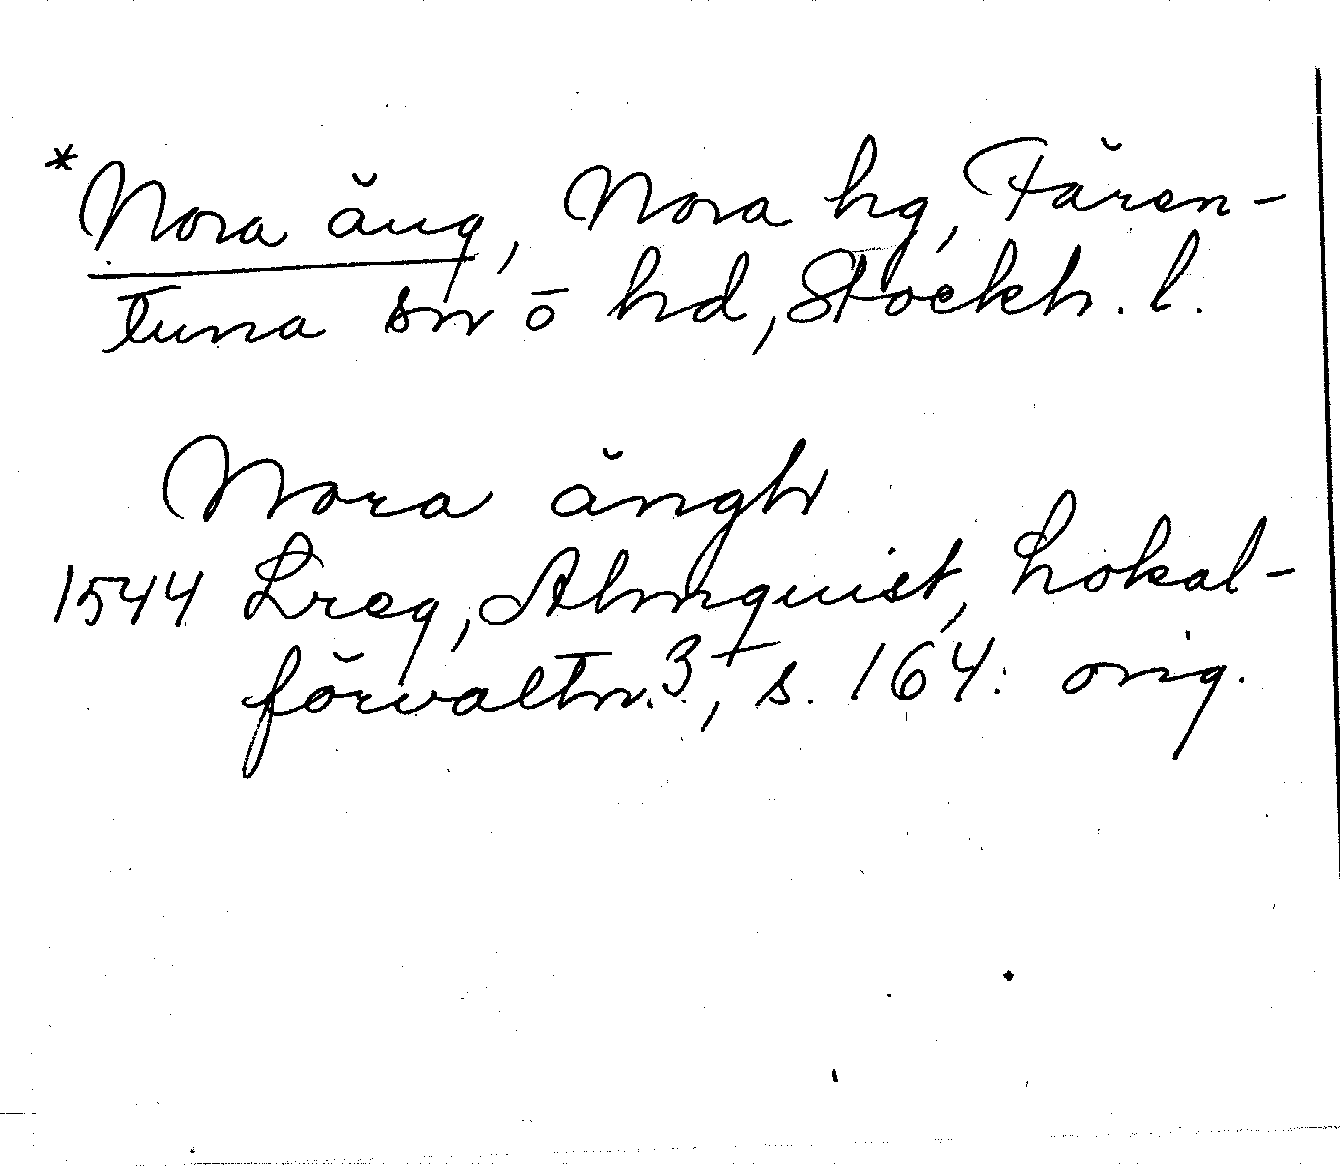 *Nora äng, Nora hg, Fären-
tuna sn o hd, Stockh. l.
Nora ängh
1544 Lreg, Almquist, Lokal-
förvaltn. 3, s. 164: orig.